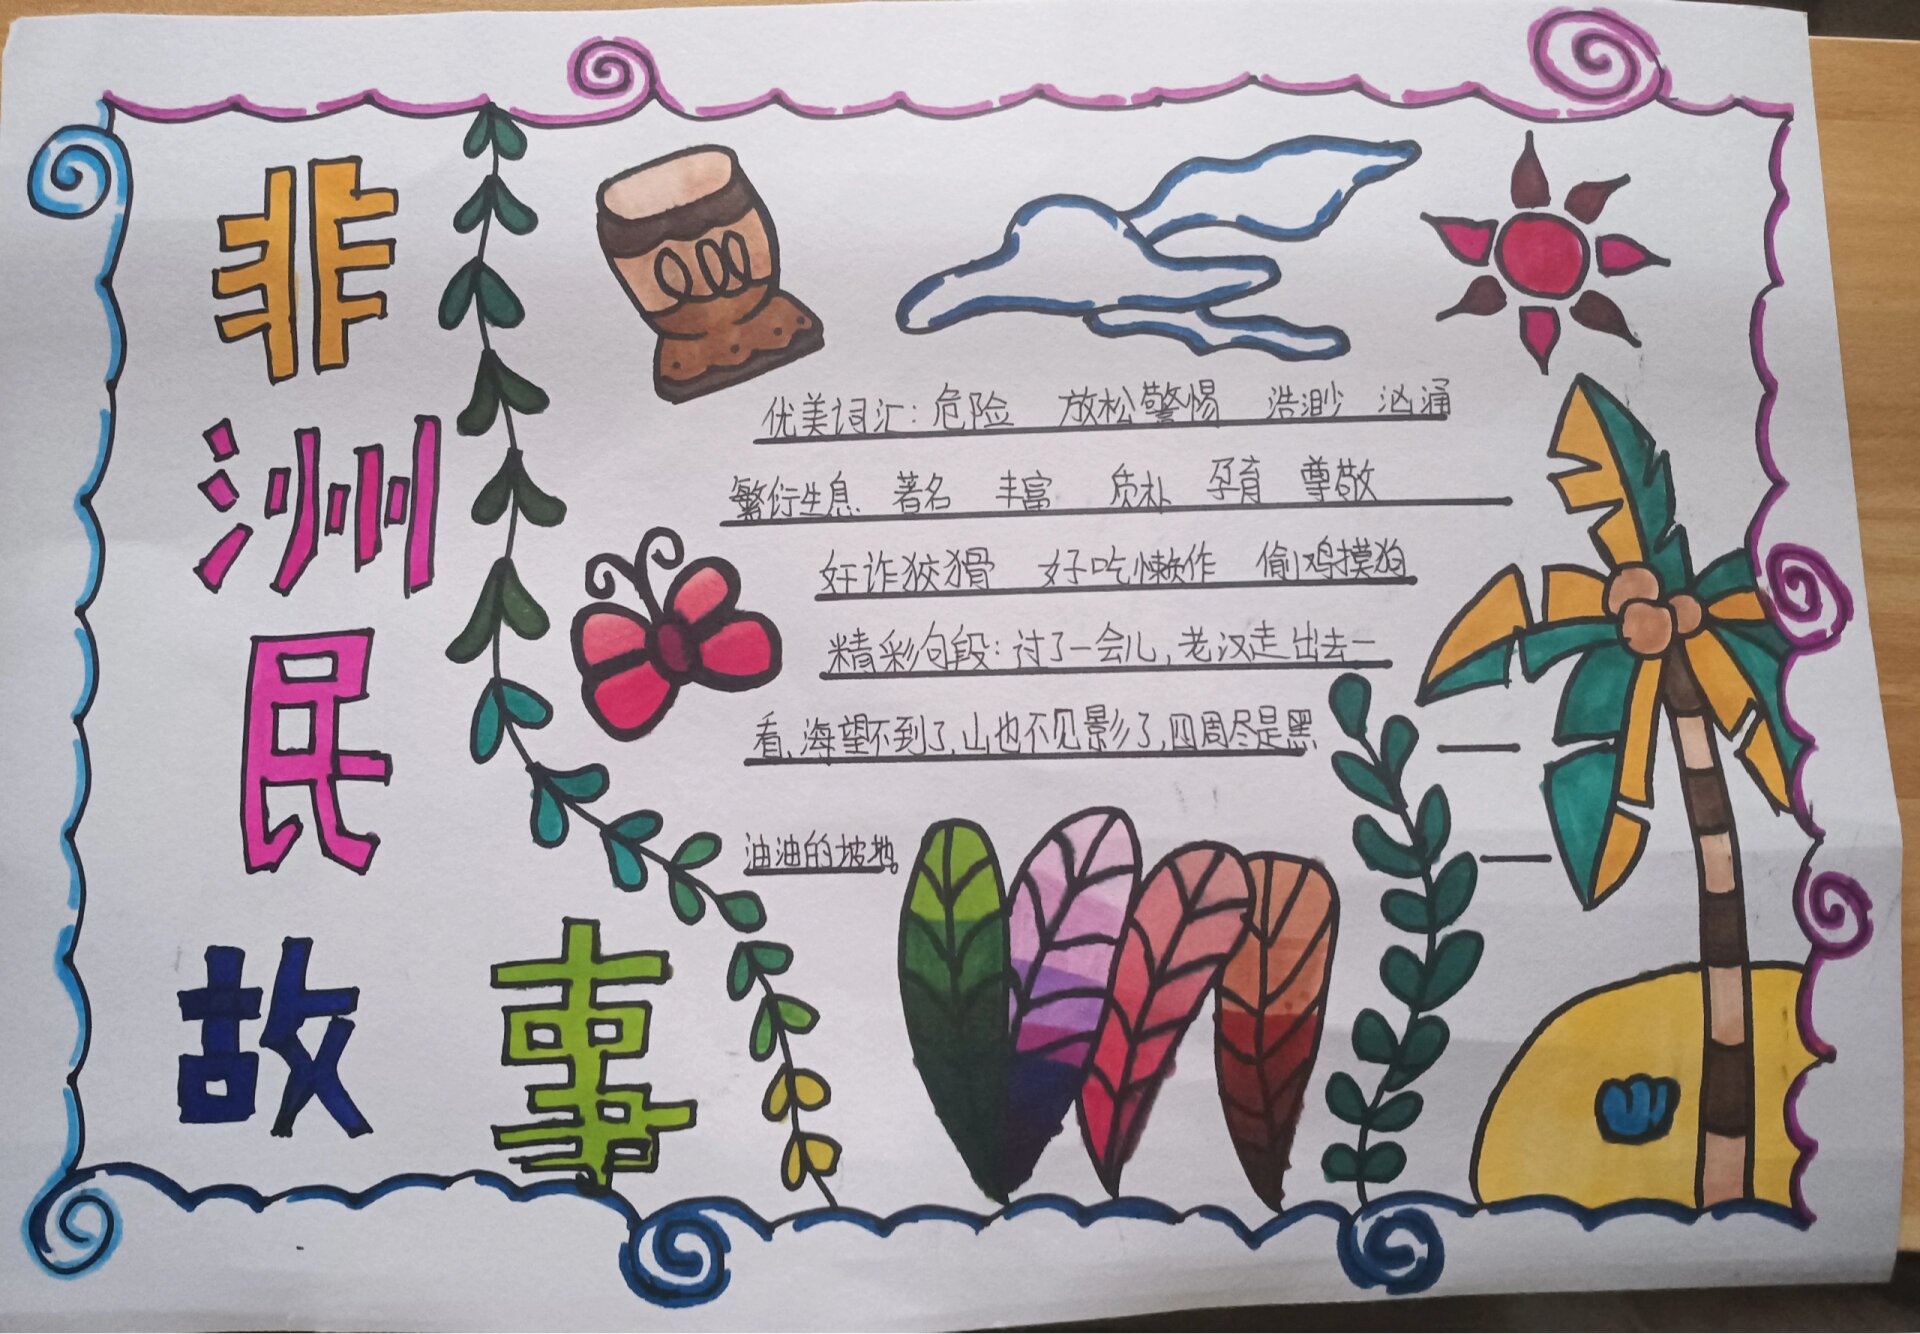 非洲民故事
优美词汇：危险 放松警惕 浩渺 汹涌
繁衍生息 著名 丰富 质朴 孕育 尊敬
奸诈狡猾 好吃懒作 偷鸡摸狗
精彩句段：过了一会儿，老汉走出去一
看，海望不到了，山也不见影了，四周尽是黑
油油的坡地。